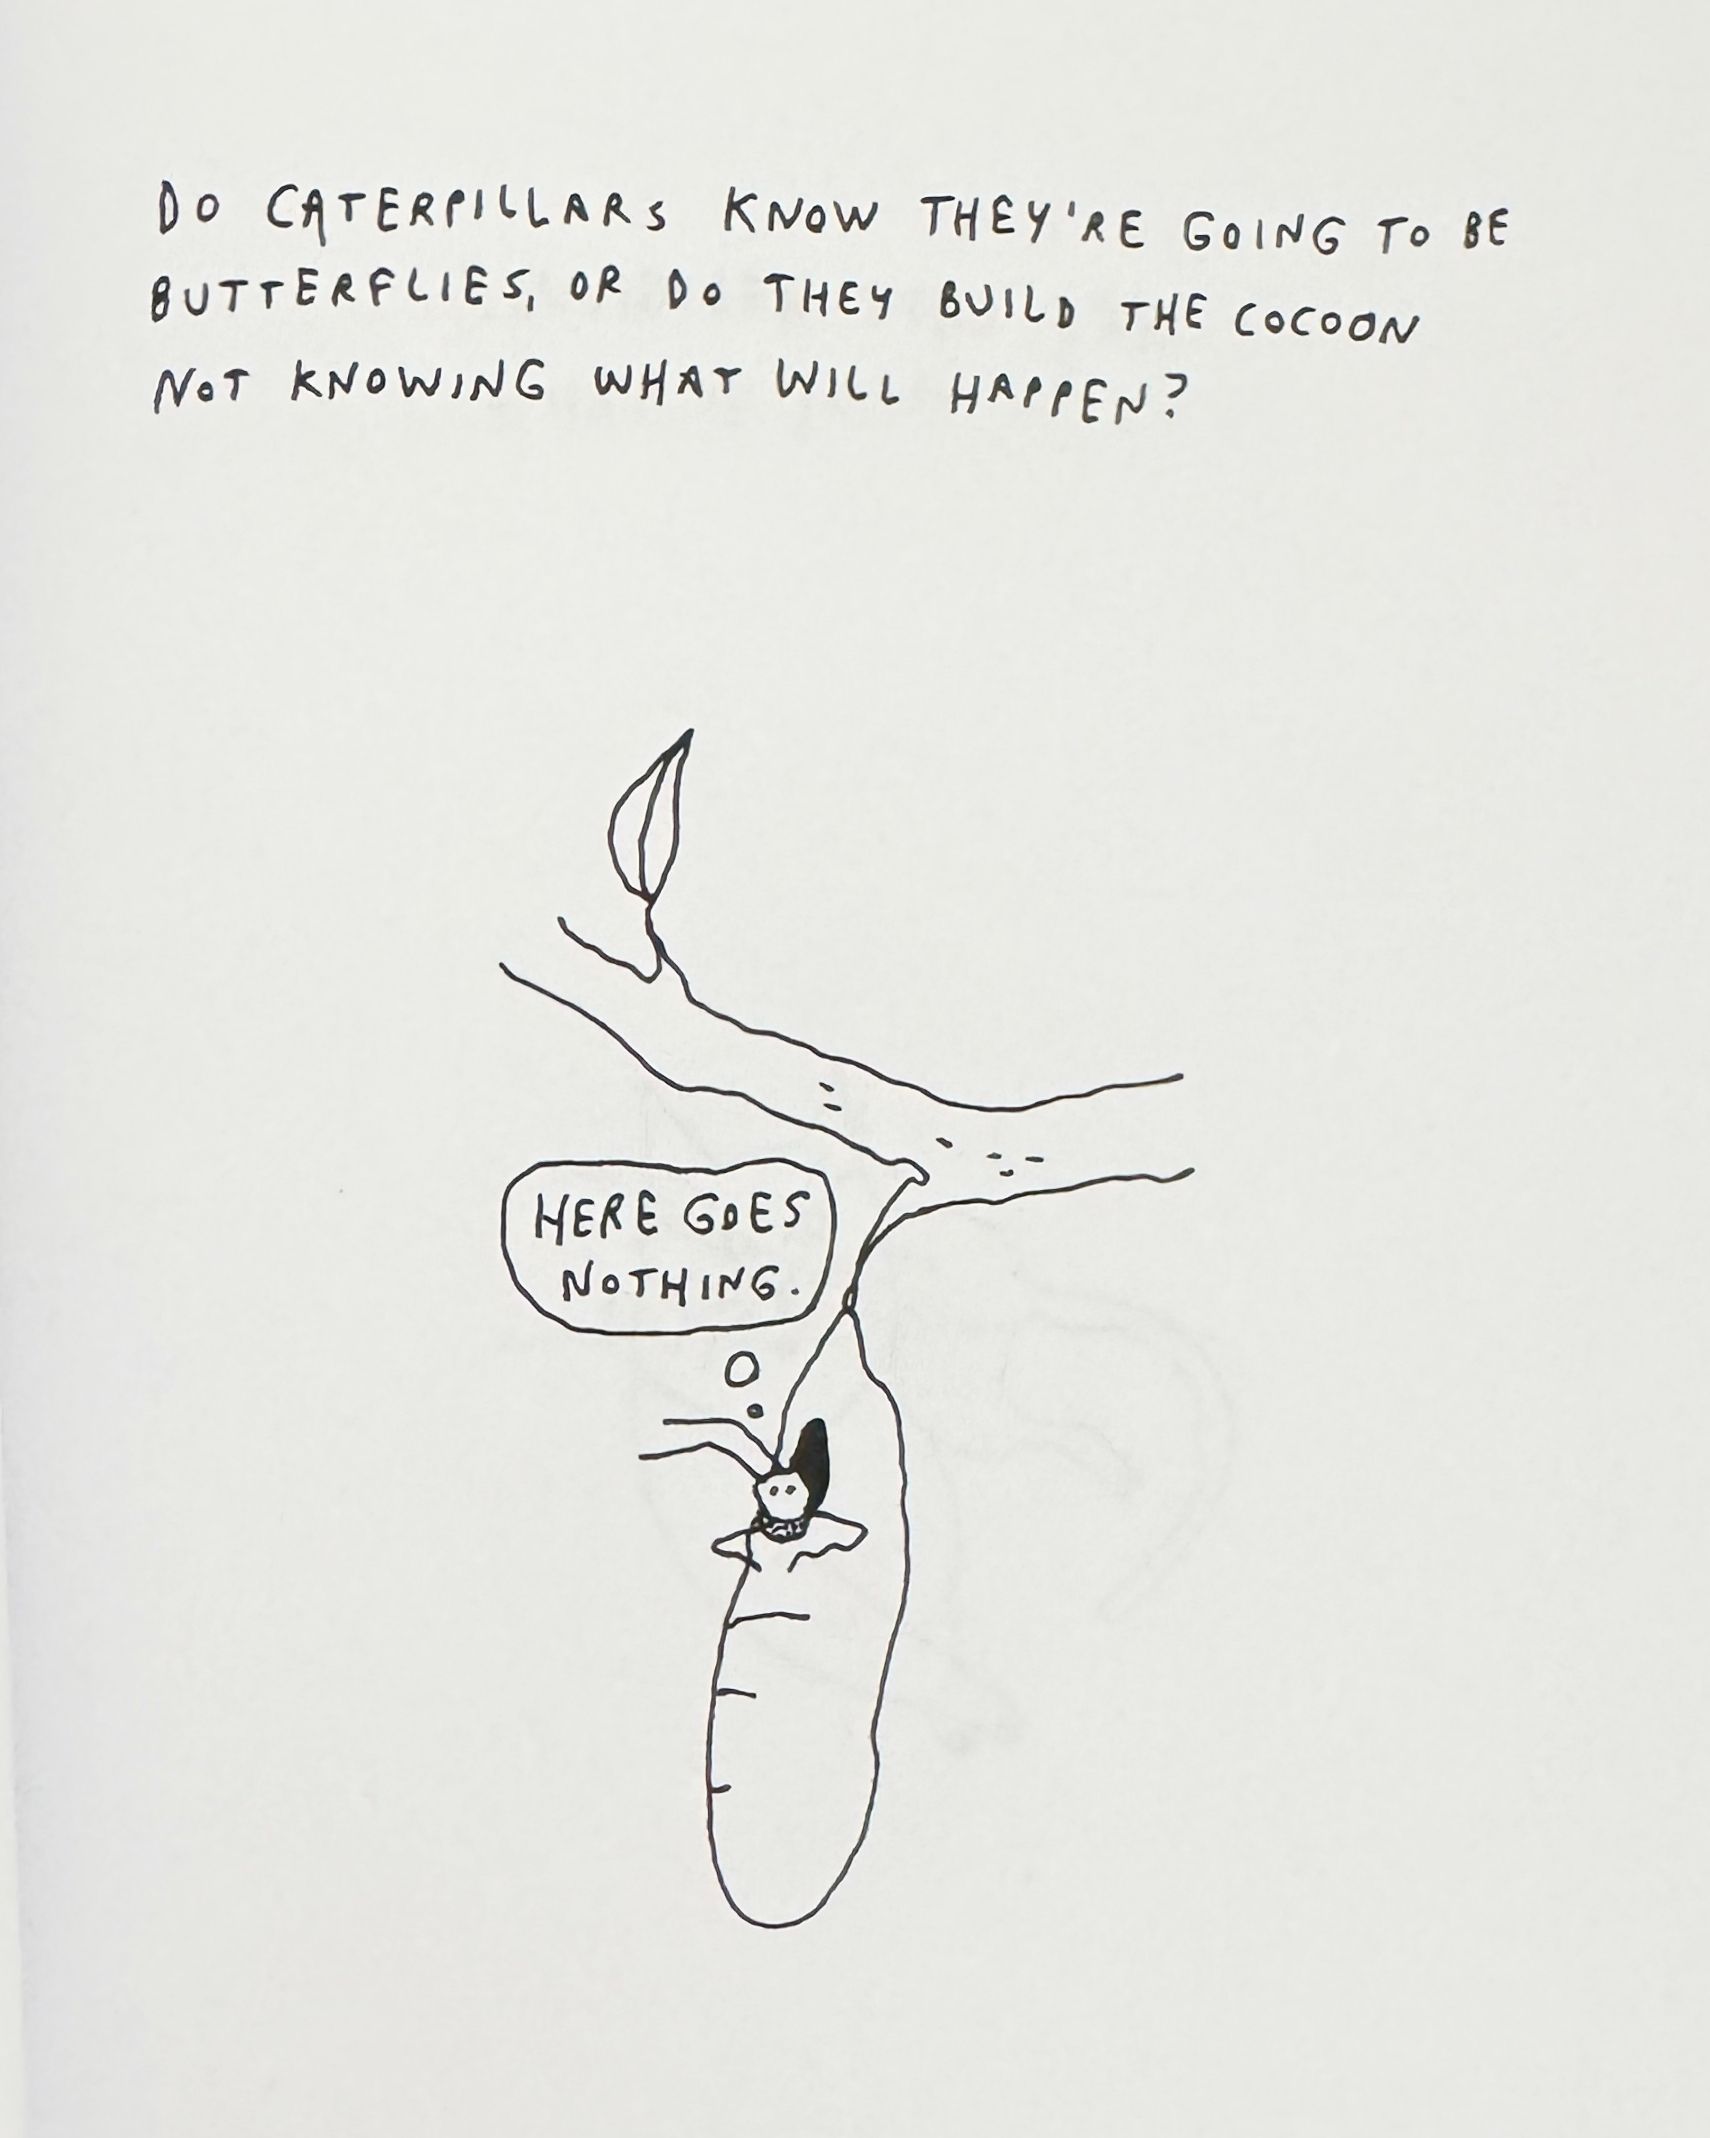 DO CATERPILLARS KNOW THEY'RE GOING TO BE
BUTTERFLIES, OR DO THEY BUILD THE COCOON
NOT KNOWING WHAT WILL HAPPEN?
HERE GOES
NOTHING.